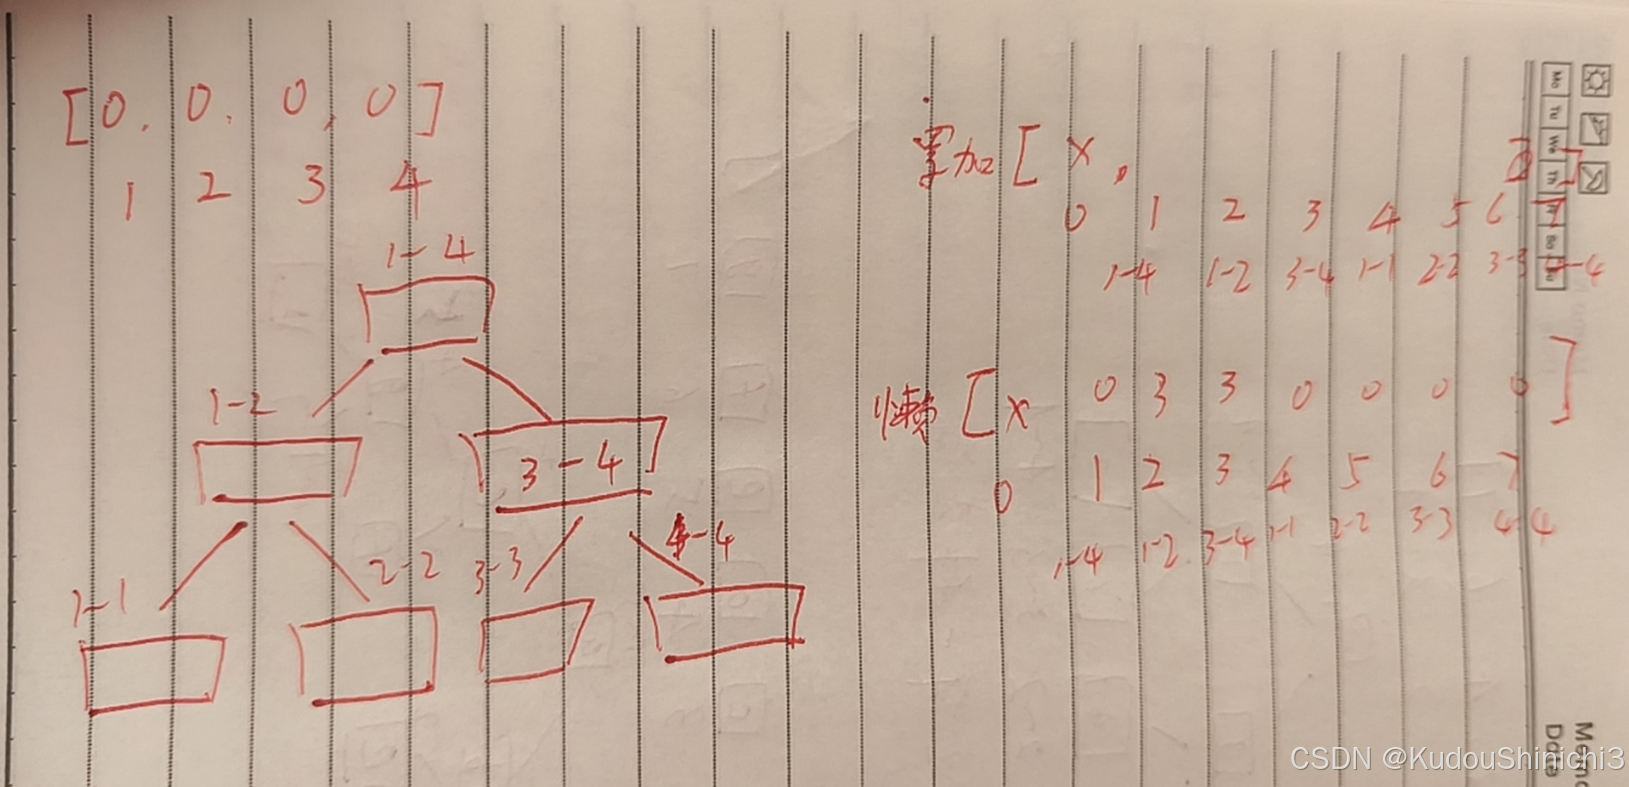 [0, 0, 0, 0]
1 2 3 4
1-4
1-2
3-4
1-1
2-2
3-3
4-4
累加 [ x,
0 1 2 3 4 5 6 7
1-4 1-2 3-4 1-1 2-2 3-3 4-4
懒 [ x 0 3 3 0 0 0 0 ]
0 1 2 3 4 5 6 7
1-4 1-2 3-4 1-1 2-2 3-3 4-4
Mo
Tu
We
Th
Fr
Sa
Su
Date
CSDN @KudouShinichi3